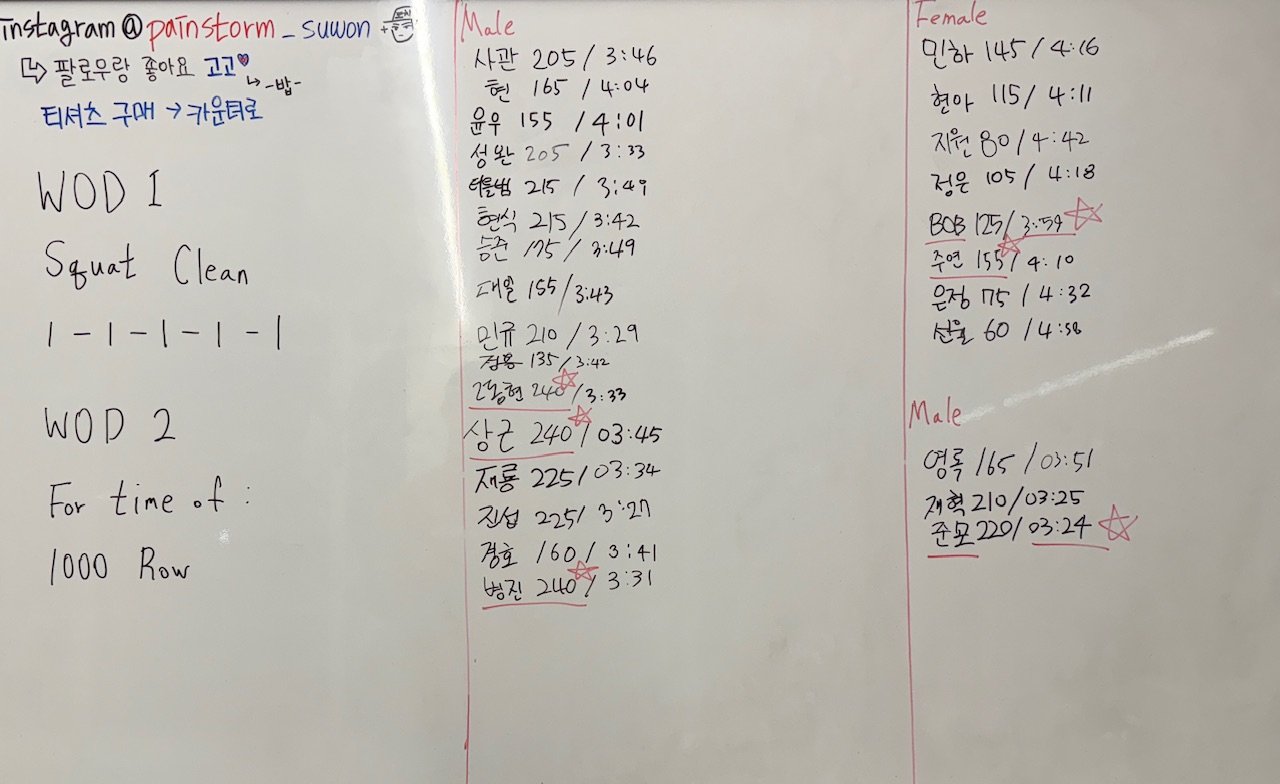 instagram@painstorm_suwon
↳ 팔로우랑 좋아요 고고♥
↳ -밥-
티셔츠 구매 → 카운터로
WOD 1
Squat Clean
1 - 1 - 1 - 1 - 1
WOD 2
For time of :
1000 Row
Male
사관 205 / 3:46
현 165 / 4:04
윤우 155 / 4:01
성완 205 / 3:33
215 / 3:49
현식 215 / 3:42
승준 175 / 3:49
대일 155 / 3:43
민규 210 / 3:29
135 / 3:42
240 / 3:33
상근 240 / 03:45
재룡 225 / 03:34
진섭 225 / 3:27
경호 160 / 3:41
병진 240 / 3:31
Female
민하 145 / 4:16
현아 115 / 4:11
지원 80 / 4:42
정은 105 / 4:18
BOB 125 / 3:59
주연 155 / 4:10
은정 75 / 4:32
선율 60 / 4:58
Male
영록 165 / 03:51
재혁 210 / 03:25
준모 220 / 03:24